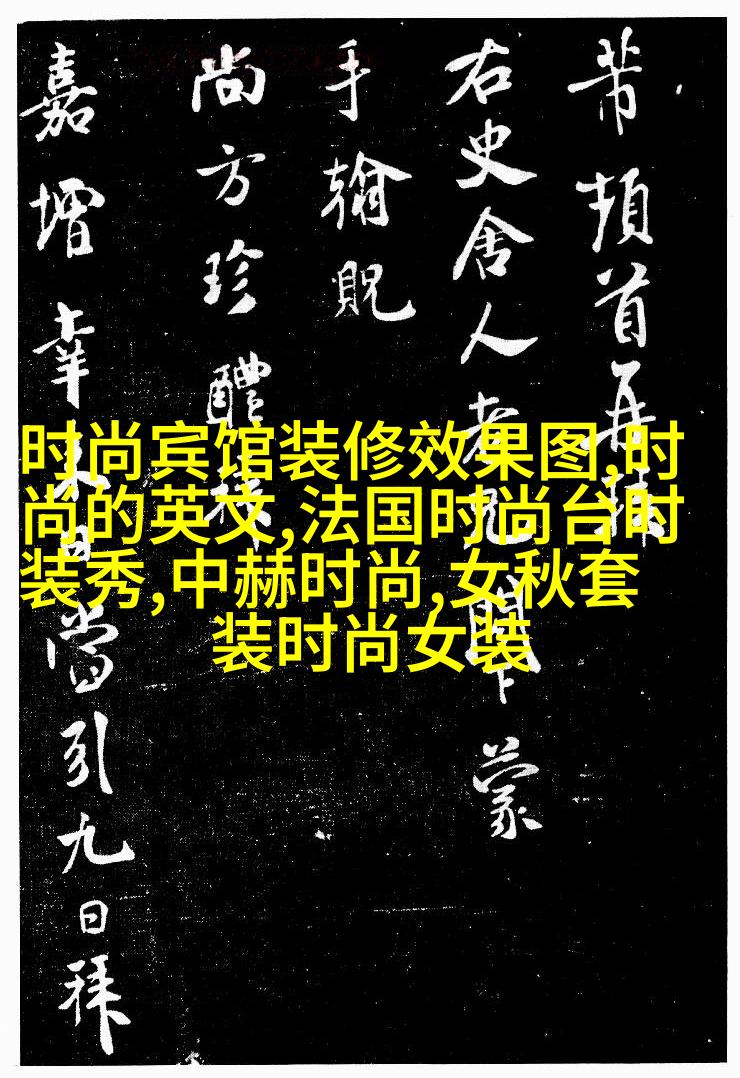 芾頓首再拜
右史舍人老兄閣下蒙
手翰貺
尚方珍醴
嘉增幸來日當引九日拜
时尚宾馆装修效果图,时
尚的英文,法国时尚台时
装秀,中赫时尚,女秋套
装时尚女装